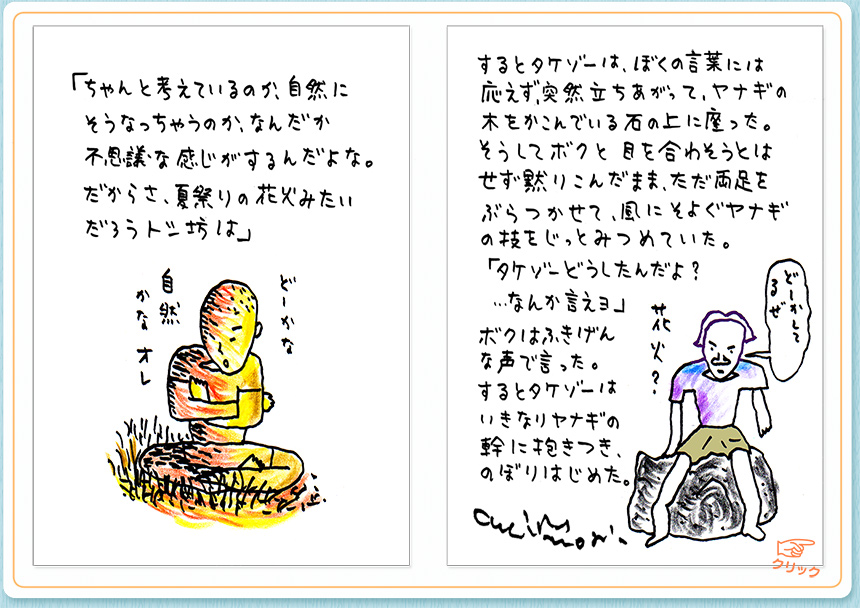 「ちゃんと考えているのか、自然に
そうなっちゃうのか、なんだか
不思議な感じがするんだよな。
だからさ、夏祭りの花火みたい
だろうトシ坊は」
どーかな
自然
かな オレ
するとタケゾーは、ぼくの言葉には
応えず、突然立ちあがって、ヤナギの
木をかこんでいる石の上に座った。
そうしてボクと目を合わそうとは
せず黙りこんだまま、ただ両足を
ぶらつかせて、風にそよぐヤナギ
の枝をじっとみつめていた。
「タケゾーどうしたんだよ?
…なんか言えョ」
ボクはふきげん
な声で言った。
するとタケゾーは
いきなりヤナギの
幹に抱きつき、
のぼりはじめた。
花火?
どーかして
るぜ
クリック